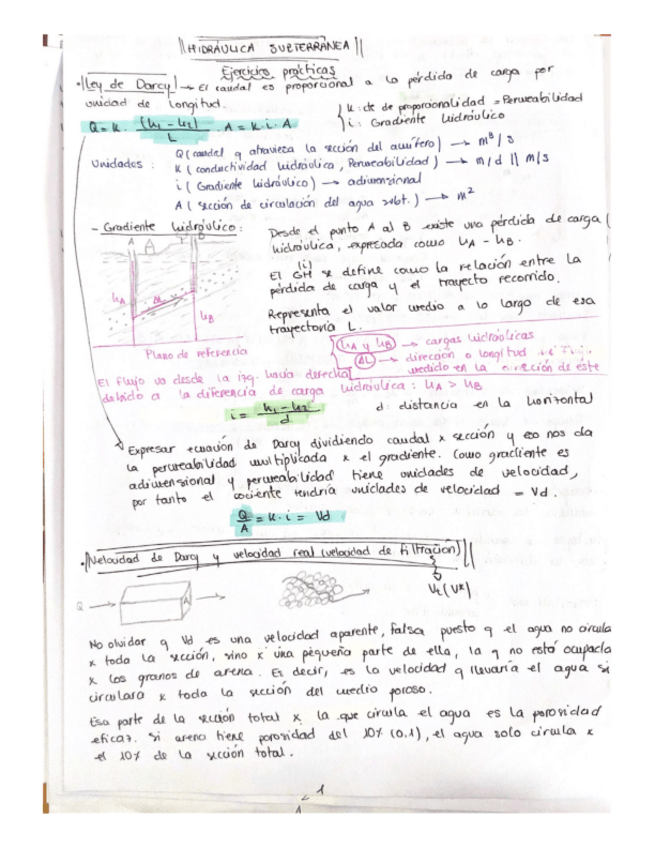 HIDRÁULICA SUBTERRÁNEA
Ejercicios prácticas
· Ley de Darcy → El caudal es proporcional a la pérdida de carga por
unidad de longitud.
K: cte de proporcionalidad = Permeabilidad
i: Gradiente hidráulico
Q = K · (h1 - h2) / L · A = K · i · A
Unidades: Q (caudal q atraviesa la sección del acuífero) → m³/s
K (conductividad hidráulica, Permeabilidad) → m/d || m/s
i (Gradiente hidráulico) → adimensional
A (sección de circulación del agua subt.) → m²
- Gradiente hidráulico:
A B
hA ΔL hB
Plano de referencia
Desde el punto A al B existe una pérdida de carga
hidráulica, expresada como hA - hB.
(i)
El GH se define como la relación entre la
pérdida de carga y el trayecto recorrido.
Representa el valor medio a lo largo de esa
trayectoria L.
hA y hB → cargas hidráulicas
ΔL → dirección o longitud
medido en la dirección de este
El flujo va desde la izq. hacia derecha
debido a la diferencia de carga hidráulica: hA > hB
i = h1 - h2 / d
d: distancia en la horizontal
Expresar ecuación de Darcy dividiendo caudal x sección y eso nos da
la permeabilidad multiplicada x el gradiente. Como gradiente es
adimensional y permeabilidad tiene unidades de velocidad,
por tanto el cociente tendría unidades de velocidad = Vd.
Q/A = K · i = Vd
· Velocidad de Darcy y velocidad real (velocidad de filtración)
Vt (V*)
Q → A →
No olvidar q Vd es una velocidad aparente, falsa puesto q el agua no circula
x toda la sección, sino x una pequeña parte de ella, la q no está ocupada
x los granos de arena. Es decir, es la velocidad q llevaría el agua si
circulara x toda la sección del medio poroso.
Esa parte de la sección total x la que circula el agua es la porosidad
eficaz. Si arena tiene porosidad del 10% (0,1), el agua solo circula x
el 10% de la sección total.
1